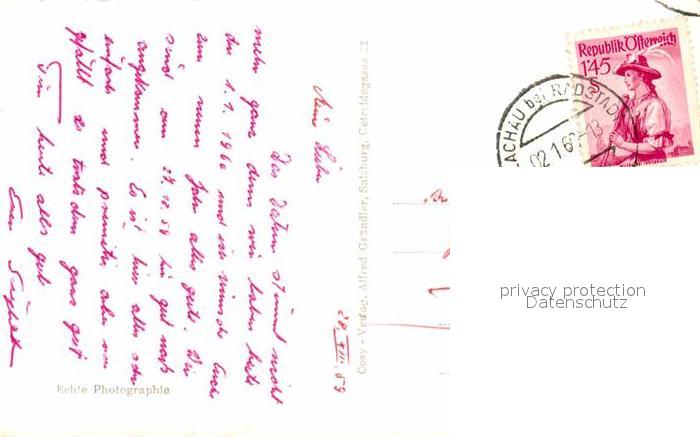 28. XII. 59
Meine Lieben
Das Datum stimmt nicht
mehr ganz denn wir haben heute
den 1.1.1960 und ich wünsche Euch
zum neuen Jahr alles gute. Wir
sind am 27.12.59 hier gut
angekommen. Es ist hier alles sehr
einfach und primitiv aber
gefällt es trotzdem ganz gut
alles gut
Echte Photographie
Cosy - Verlag, Alfred Gründler, Salzburg, Getreidegasse 22
Republik Österreich
1'45
ACHAU bei RADSTADT
02.1.60-13
privacy protection
Datenschutz